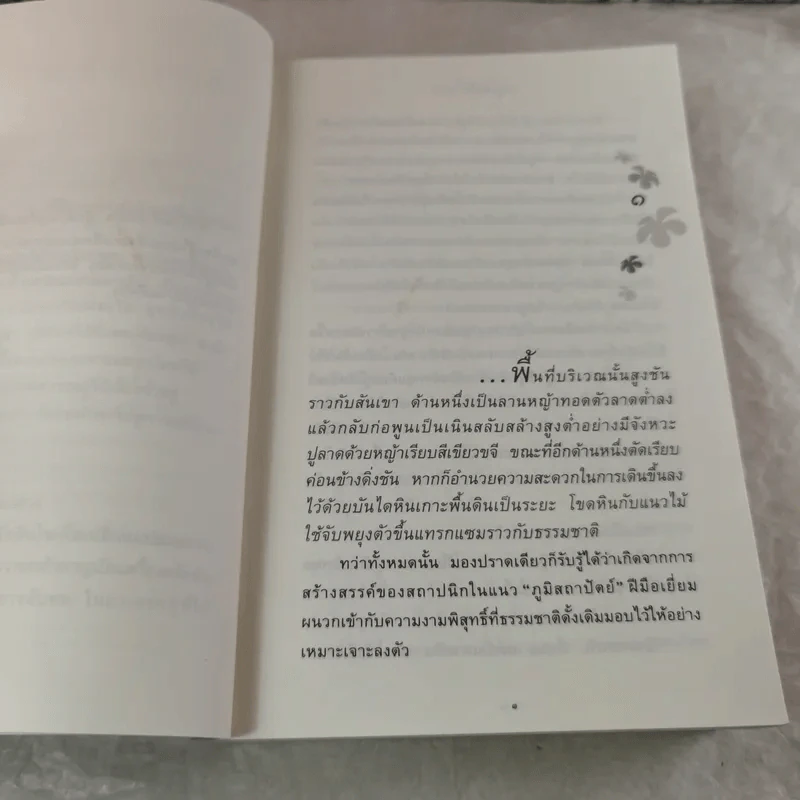 ๑
...พื้นที่บริเวณนั้นสูงชัน
ราวกับสันเขา ด้านหนึ่งเป็นลานหญ้าทอดตัวลาดต่ำลง
แล้วกลับก่อพูนเป็นเนินสลับสล้างสูงต่ำอย่างมีจังหวะ
ปูลาดด้วยหญ้าเรียบสีเขียวขจี ขณะที่อีกด้านหนึ่งตัดเรียบ
ค่อนข้างดิ่งชัน หากก็อำนวยความสะดวกในการเดินขึ้นลง
ไว้ด้วยบันไดหินเกาะพื้นดินเป็นระยะ โขดหินกับแนวไม้
ใช้จับพยุงตัวขึ้นแทรกแซมราวกับธรรมชาติ
ทว่าทั้งหมดนั้น มองปราดเดียวก็รับรู้ได้ว่าเกิดจากการ
สร้างสรรค์ของสถาปนิกในแนว “ภูมิสถาปัตย์” ฝีมือเยี่ยม
ผนวกเข้ากับความงามพิสุทธิ์ที่ธรรมชาติดั้งเดิมมอบไว้ให้อย่าง
เหมาะเจาะลงตัว
๑